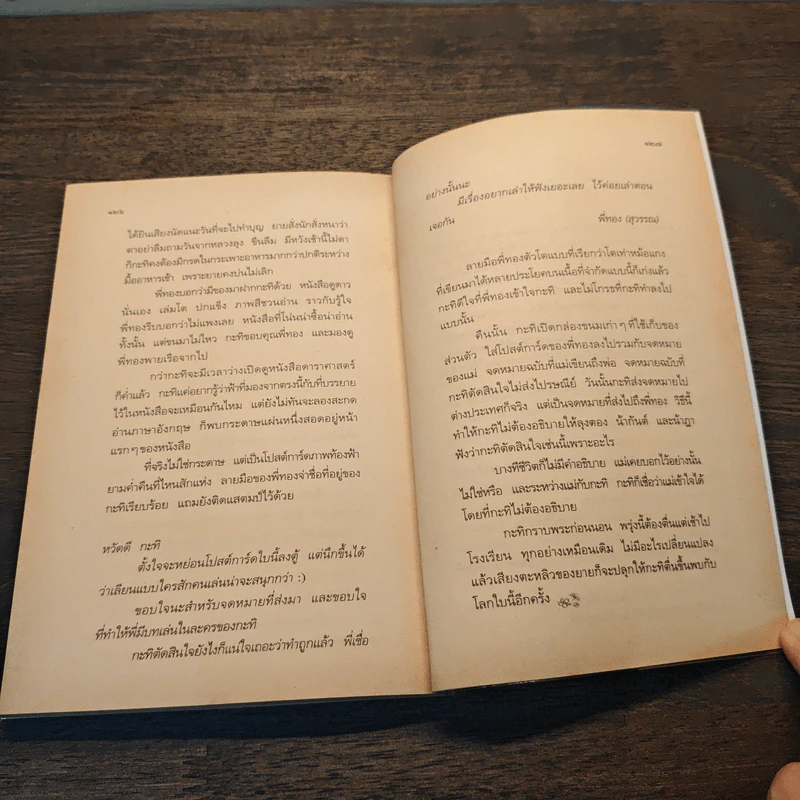 ๑๒๖
ได้ยินเสียงนัดแนะวันที่จะไปทำบุญ ยายสั่งนักสั่งหนาว่า
ตาอย่าลืมถามวันจากหลวงลุง ขืนลืม มีหวังเช้านี้ไม่ตา
ก็กะทิคงต้องมีกรดในกระเพาะอาหารมากกว่าปกติระหว่าง
มื้ออาหารเช้า เพราะยายคงบ่นไม่เลิก
พี่ทองบอกว่ามีของมาฝากกะทิด้วย หนังสือดูดาว
นั่นเอง เล่มโต ปกแข็ง ภาพสีชวนอ่าน ราวกับรู้ใจ
พี่ทองรีบบอกว่าไม่แพงเลย หนังสือที่โน่นน่าซื้อน่าอ่าน
ทั้งนั้น แต่ขนมาไม่ไหว กะทิขอบคุณพี่ทอง และมองดู
พี่ทองพายเรือจากไป
กว่ากะทิจะมีเวลาว่างเปิดดูหนังสือดาราศาสตร์
ก็ค่ำแล้ว กะทิแค่อยากรู้ว่าฟ้าที่มองจากตรงนี้กับที่บรรยาย
ไว้ในหนังสือจะเหมือนกันไหม แต่ยังไม่ทันจะลองสะกด
อ่านภาษาอังกฤษ ก็พบกระดาษแผ่นหนึ่งสอดอยู่หน้า
แรกๆของหนังสือ
ที่จริงไม่ใช่กระดาษ แต่เป็นโปสต์การ์ดภาพท้องฟ้า
ยามค่ำคืนที่ไหนสักแห่ง ลายมือของพี่ทองจ่าชื่อที่อยู่ของ
กะทิเรียบร้อย แถมยังติดแสตมป์ไว้ด้วย
หวัดดี กะทิ
ตั้งใจจะหย่อนโปสต์การ์ดใบนี้ลงตู้ แต่นึกขึ้นได้
ว่าเลียนแบบใครสักคนเล่นน่าจะสนุกกว่า :)
ขอบใจนะสำหรับจดหมายที่ส่งมา และขอบใจ
ที่ทำให้พี่มีบทเล่นในละครของกะทิ
กะทิตัดสินใจยังไงก็แน่ใจเถอะว่าทำถูกแล้ว พี่เชื่อ
๑๒๗
อย่างนั้นนะ
มีเรื่องอยากเล่าให้ฟังเยอะเลย ไว้ค่อยเล่าตอน
เจอกัน
พี่ทอง (สุวรรณ)
ลายมือพี่ทองตัวโตแบบที่เรียกว่าโตเท่าหม้อแกง
ที่เขียนมาได้หลายประโยคบนเนื้อที่จำกัดแบบนี้ก็เก่งแล้ว
กะทิดีใจที่พี่ทองเข้าใจกะทิ และไม่โกรธที่กะทิทำลงไป
แบบนั้น
คืนนั้น กะทิเปิดกล่องขนมเก่าๆที่ใช้เก็บของ
ส่วนตัว ใส่โปสต์การ์ดของพี่ทองลงไปรวมกับจดหมาย
ของแม่ จดหมายฉบับที่แม่เขียนถึงพ่อ จดหมายฉบับที่
กะทิตัดสินใจไม่ส่งไปรษณีย์ วันนั้นกะทิส่งจดหมายไป
ต่างประเทศก็จริง แต่เป็นจดหมายที่ส่งไปถึงพี่ทอง วิธีนี้
ทำให้กะทิไม่ต้องอธิบายให้ลุงตอง น้ากันต์ และน้าฎา
ฟังว่ากะทิตัดสินใจเช่นนี้เพราะอะไร
บางทีชีวิตก็ไม่มีคำอธิบาย แม่เคยบอกไว้อย่างนั้น
ไม่ใช่หรือ และระหว่างแม่กับกะทิ กะทิก็เชื่อว่าแม่เข้าใจได้
โดยที่กะทิไม่ต้องอธิบาย
กะทิกราบพระก่อนนอน พรุ่งนี้ต้องตื่นแต่เช้าไป
โรงเรียน ทุกอย่างเหมือนเดิม ไม่มีอะไรเปลี่ยนแปลง
แล้วเสียงตะหลิวของยายก็จะปลุกให้กะทิตื่นขึ้นพบกับ
โลกใบนี้อีกครั้ง